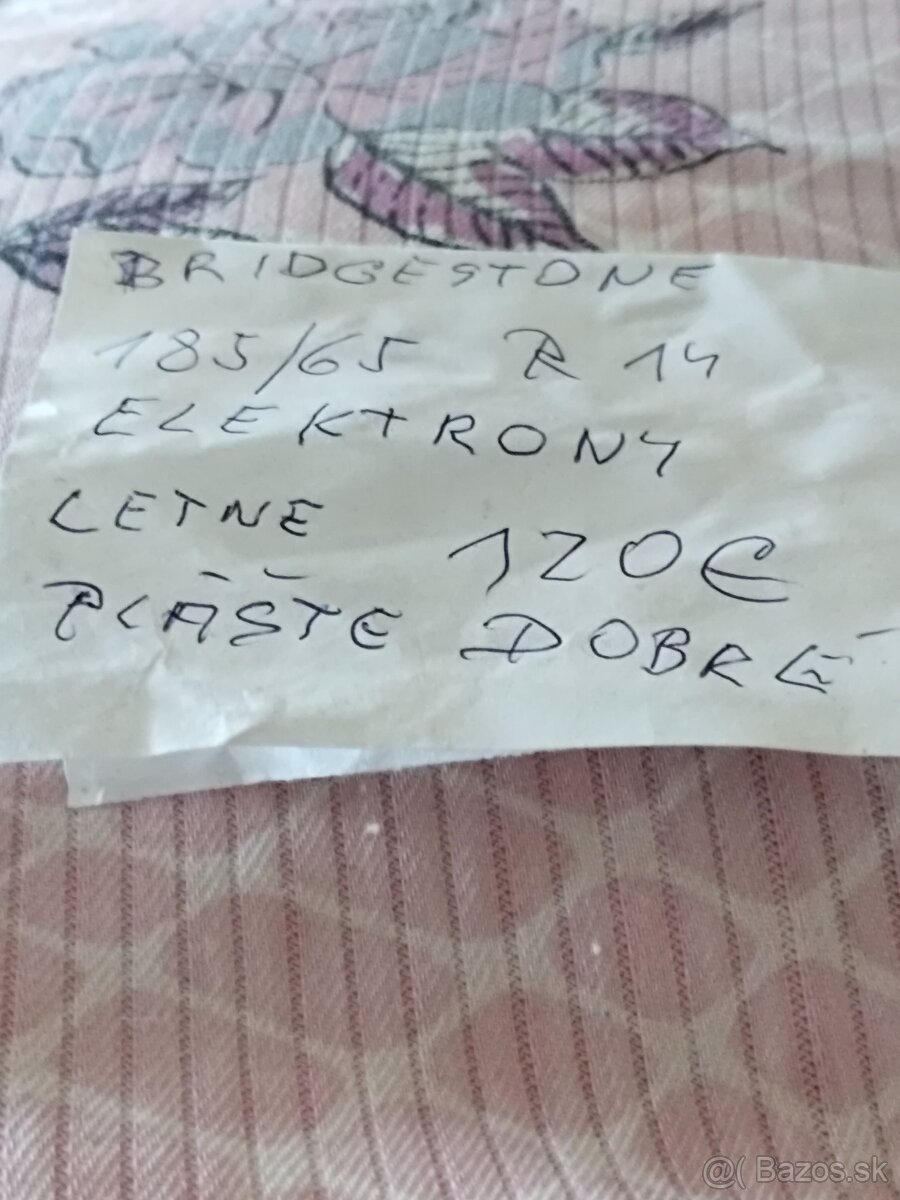 BRIDGESTONE
185/65 R 14
ELEKTRONY
LETNE 120€
PLÁŠTE DOBRÉ
@( Bazos.sk